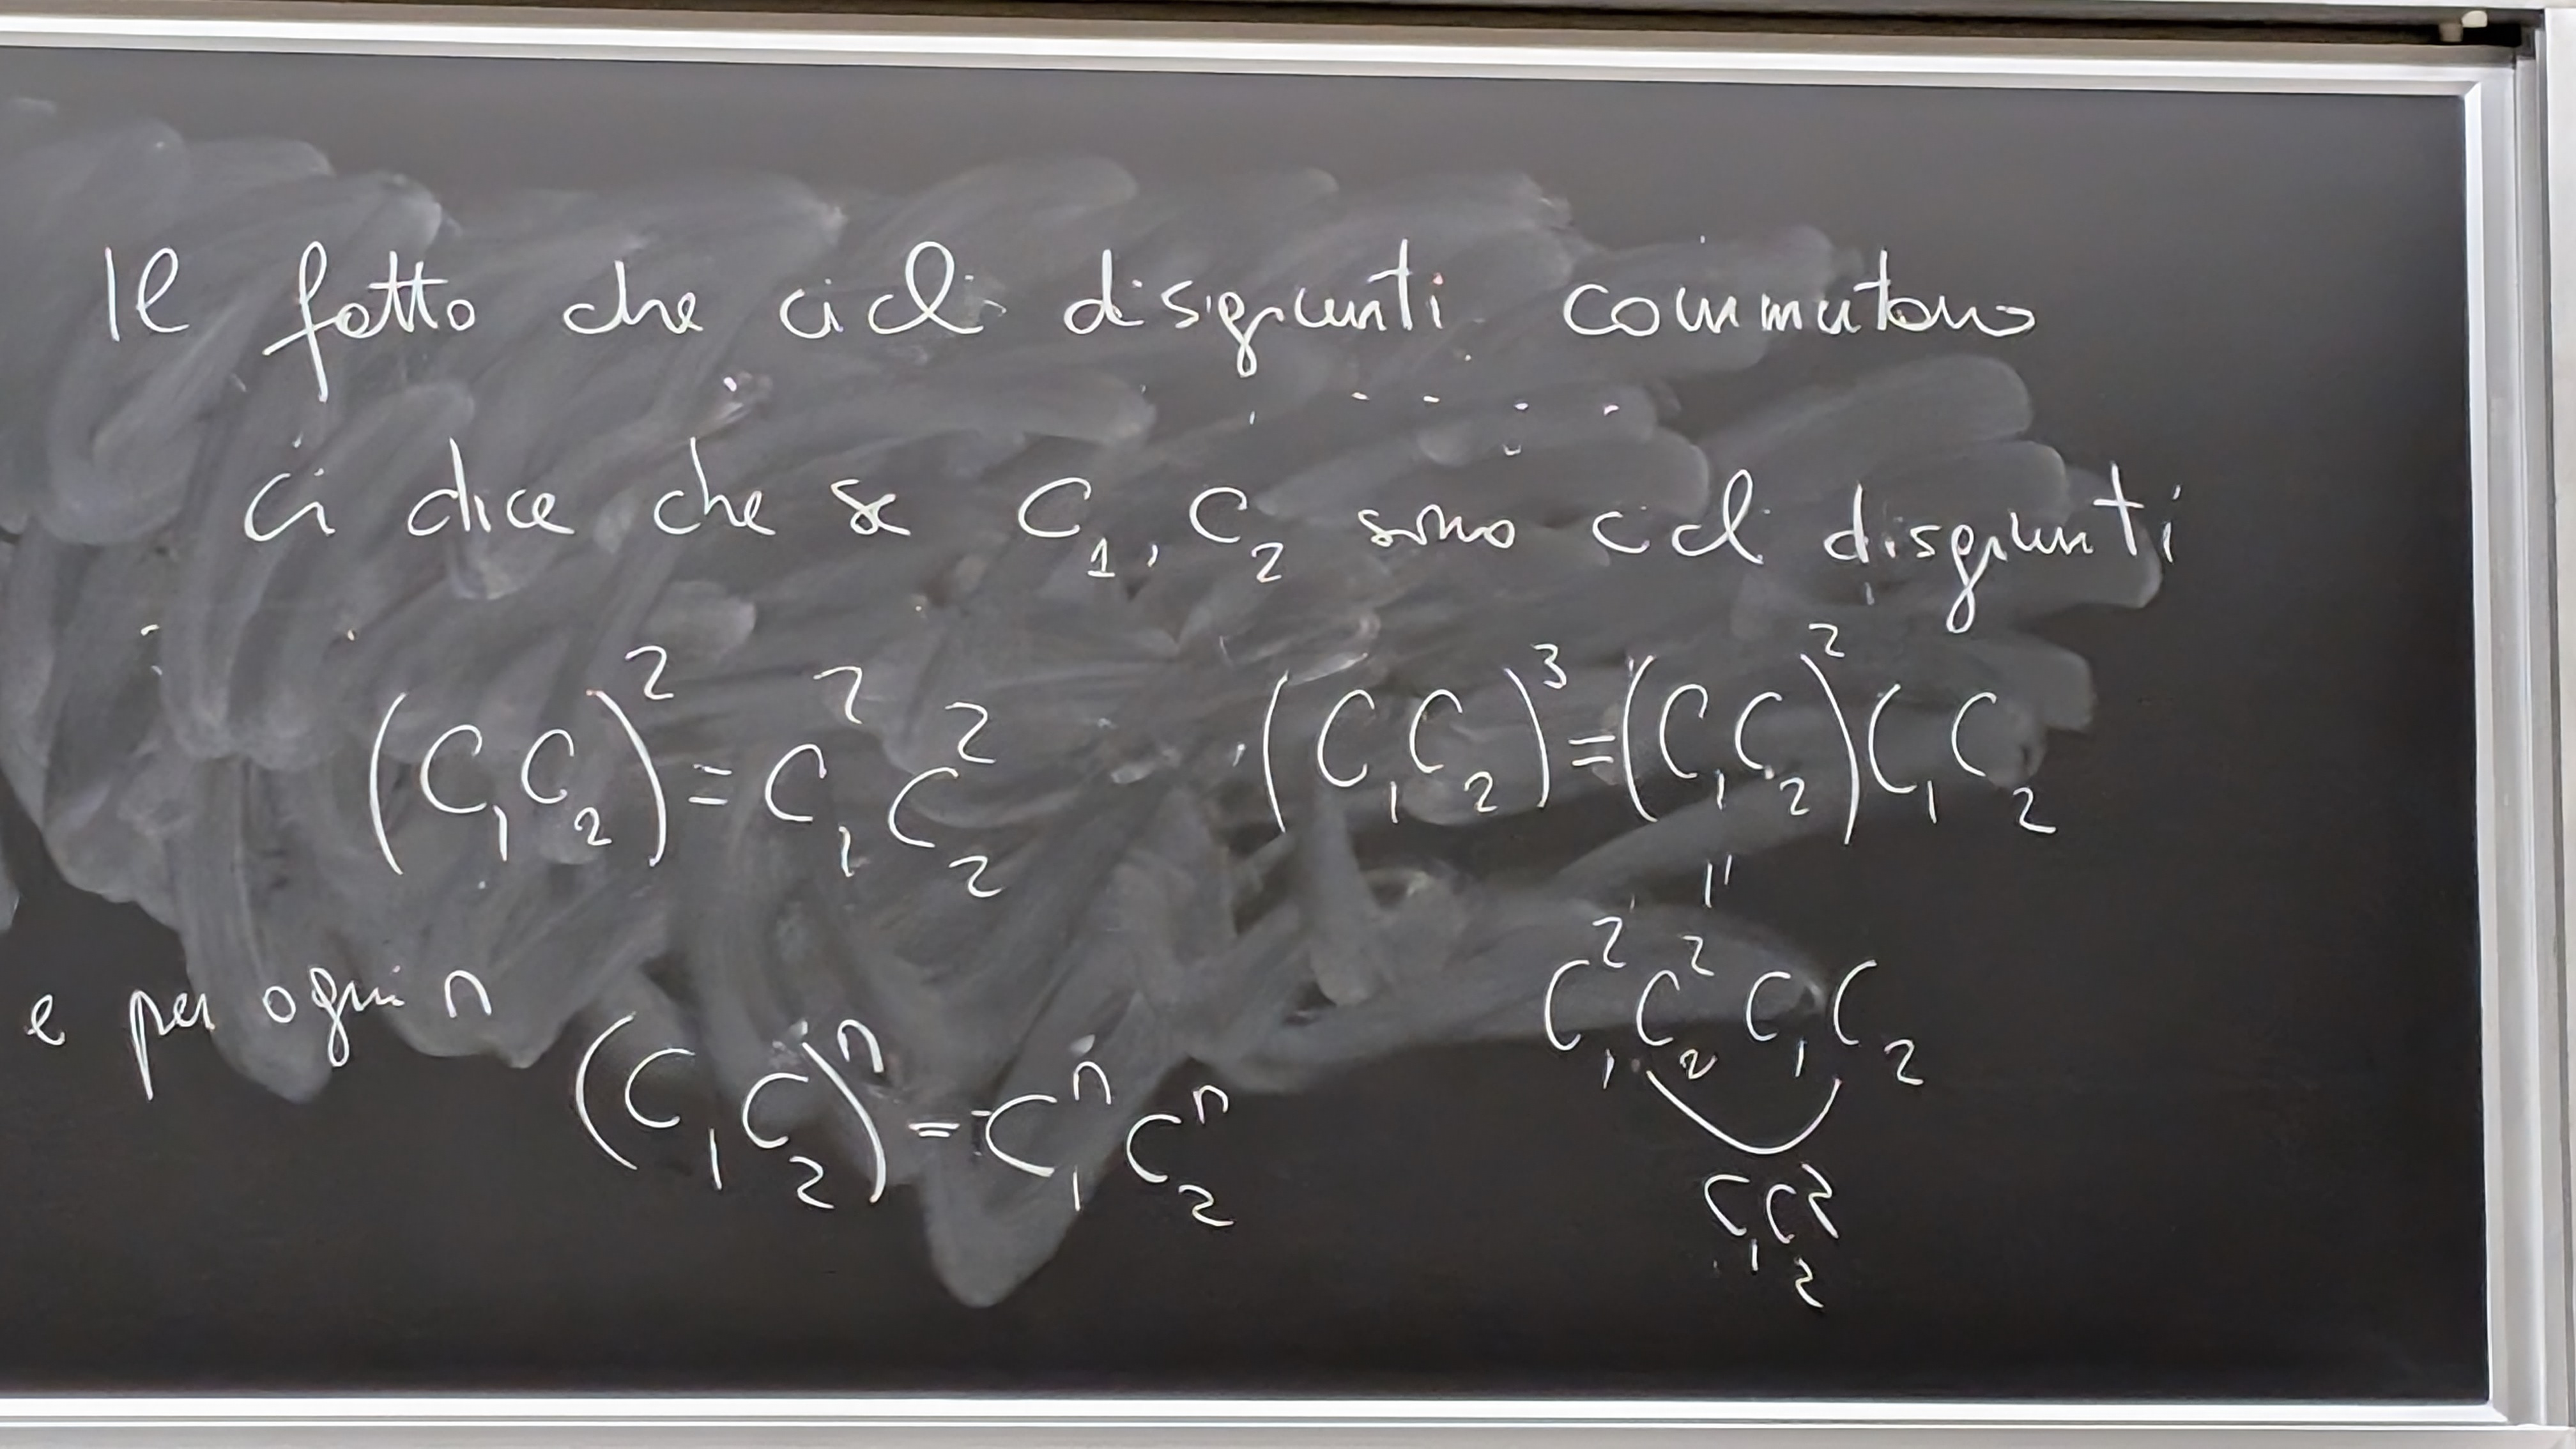 Il fatto che cicli disgiunti commutano
ci dice che se C₁, C₂ sono cicli disgiunti
(C₁C₂)² = C₁²C₂² (C₁C₂)³ = (C₁C₂)²C₁C₂
"
C₁²C₂²C₁C₂
C₁C₂²
e per ogni n
(C₁C₂)ⁿ = C₁ⁿC₂ⁿ